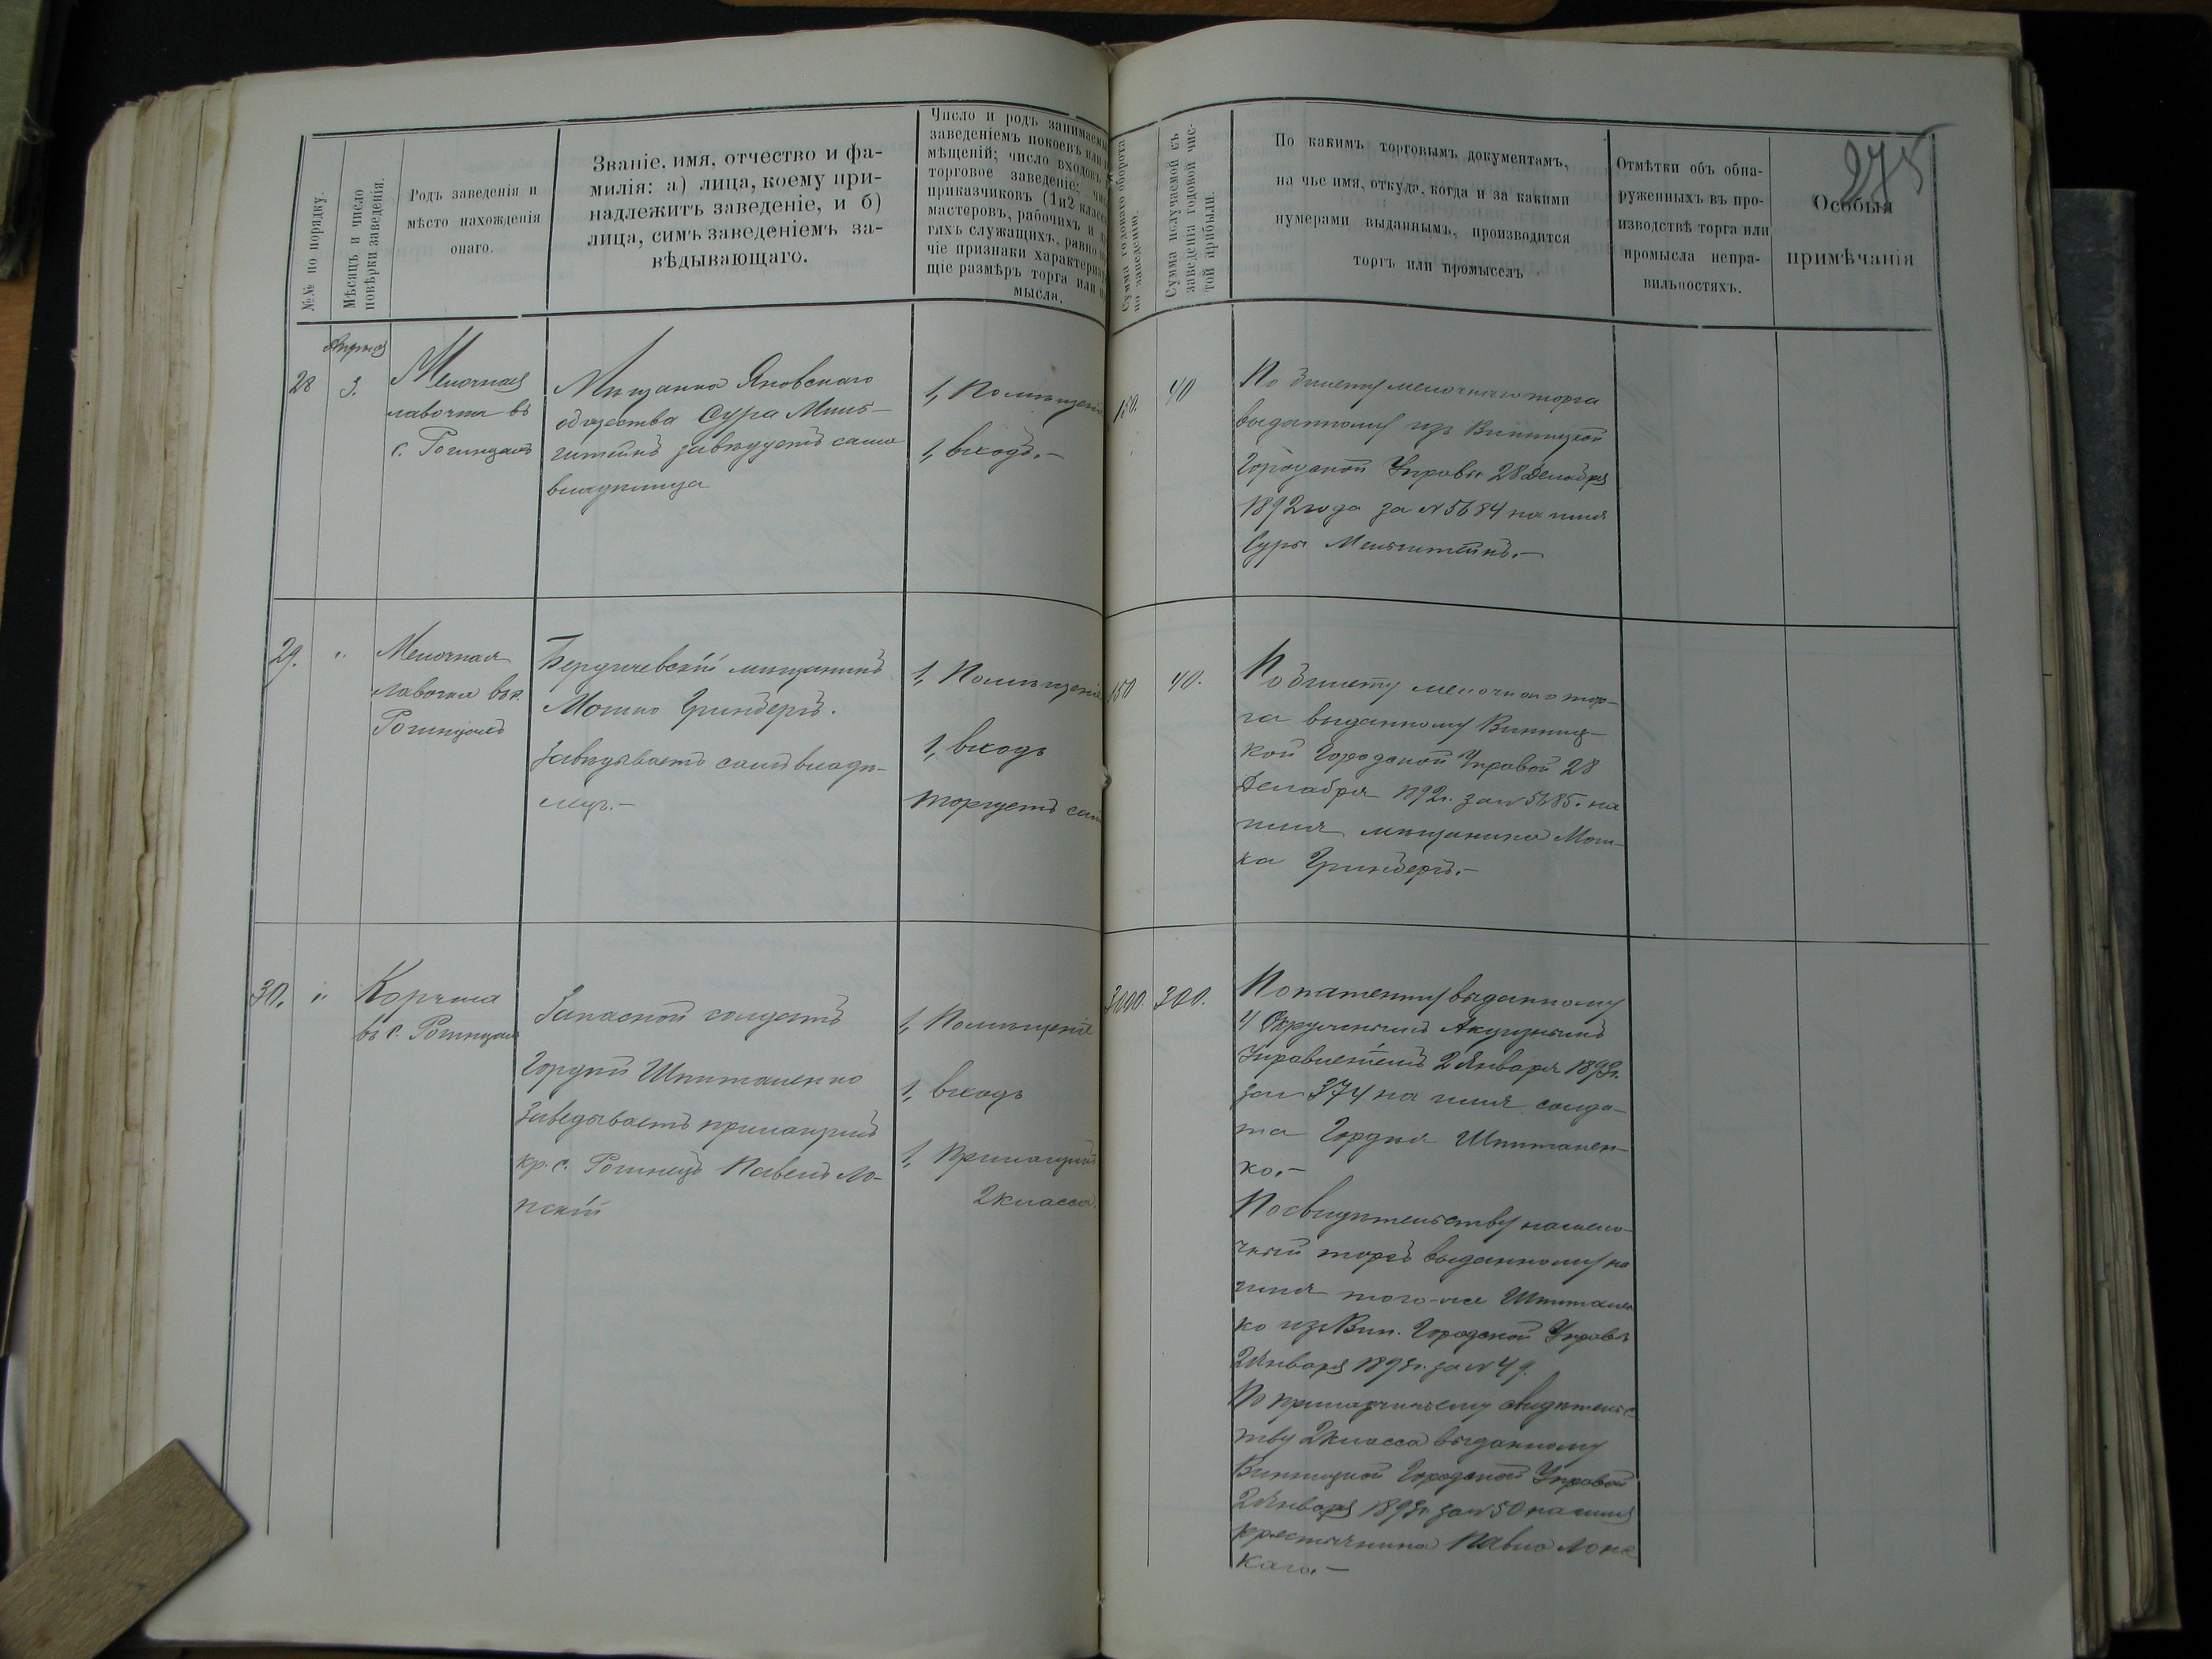 275
№№ по порядку.
Мѣсяцъ и число
повѣрки заведенія.
Родъ заведенія и
мѣсто нахожденія
онаго.
Званіе, имя, отчество и фа-
милія: а) лица, коему при-
надлежитъ заведеніе, и б)
лица, симъ заведеніемъ за-
вѣдывающаго.
Число и родъ занимаемы
заведеніемъ покоевъ или
мѣщеній; число входовъ
торговое заведеніе; чис
приказчиковъ (1 и 2 класс
мастеровъ, рабочихъ и д
гихъ служащихъ, равно
чіе признаки характериз
щіе размѣръ торга или
мысла.
Сумма годоваго оборота
по заведенію.
Сумма получаемой съ
заведенія годовой чис-
той прибыли.
По какимъ торговымъ документамъ,
на чье имя, откуда, когда и за какими
нумерами выданнымъ, производится
торгъ или промыселъ
Отмѣтки объ обна-
руженныхъ въ про-
изводствѣ торга или
промысла непра-
вильностяхъ.
Особыя
примѣчанія
28
Апрѣля
3.
Мелочная
лавочка въ
с. Рогинцахъ
Мѣщанка Яновскаго
общества Сура Миль-
штейнъ завѣдуетъ сама
владѣлица
1, Помѣщеніе
1, входъ.—
150.
40
По билету мелочнаго торга
выданному изъ Винницкой
Городской Управы 28 Декабря
1892 года за № 5684 на имя
Суры Мельштейнъ.—
29.
"
Мелочная
лавочка въ с.
Рогинцахъ
Бердичевскій мѣщанинъ
Мошко Гринбергъ.
Завѣдываетъ самъ владѣ-
лецъ.—
1, Помѣщеніе
1, входъ
торгуетъ сам
150
40.
По билету мелочнаго тор-
га выданному Винниц-
кой Городской Управой 28
Декабря 1892 г. за № 5685. на
имя мѣщанина Мош-
ка Гринбергъ.—
30.
"
Корчма
въ с. Рогинцахъ
Запасной солдатъ
Гордѣй Шпиталенко
Заведываетъ прикащикъ
кр. с. Рогинецъ Павелъ Ло-
пскій
1, Помѣщеніе
1, входъ
1, Прикащикъ
2 класса.
3000.
300.
По патенту выданному
4 Окружнымъ Акцизнымъ
Управленіемъ 2 Января 1893 г.
за № 374 на имя солда-
та Гордѣя Шпитален-
ко.—
По свидѣтельству на мело-
чный торгъ выданному на
имя того-же Шпитален
ко изъ Вин. Городской Управы
2 Января 1893 г. за № 49.
По прикащичьему свидѣтельс-
тву 2 класса выданному
Винницкой Городской Управой
2 Января 1893 г. за № 50 на имя
крестьянина Павла Лопс
каго.—